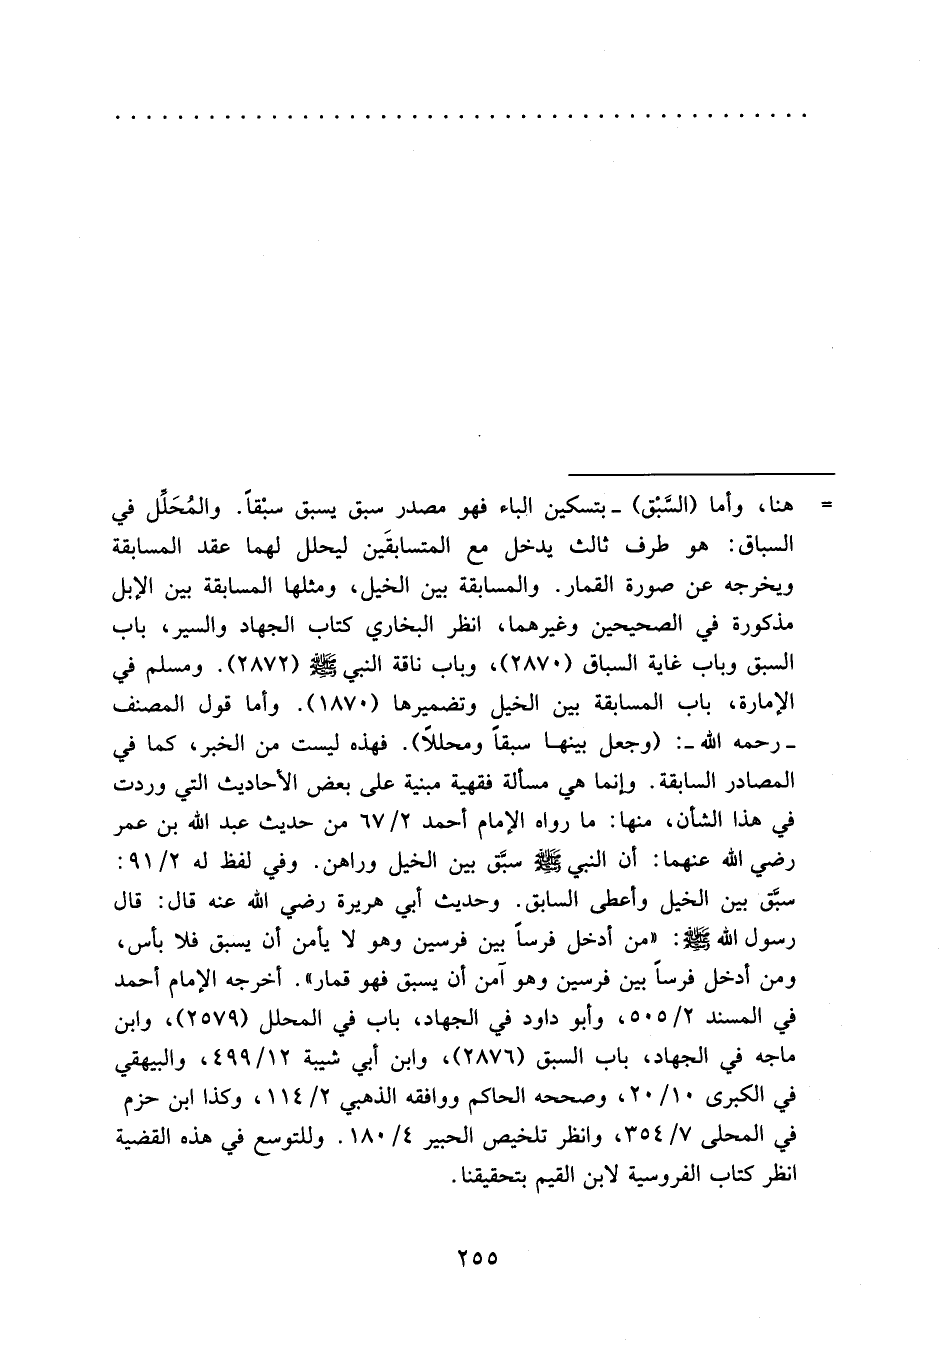 . . . . . . . . . . . . . . . . . . . . . . . . . . . . . . . . . . . . . . . . . . . . .
= هنا، وأما (السَّبْق) ـ بتسكين الباء فهو مصدر سبق يسبق سبْقاً. والمُحَلِّل في
السباق: هو طرف ثالث يدخل مع المتسابقَين ليحلل لهما عقد المسابقة
ويخرجه عن صورة القمار. والمسابقة بين الخيل، ومثلها المسابقة بين الإبل
مذكورة في الصحيحين وغيرهما، انظر البخاري كتاب الجهاد والسير، باب
السبق وباب غاية السباق (٢٨٧٠)، وباب ناقة النبي ﷺ (٢٨٧٢). ومسلم في
الإمارة، باب المسابقة بين الخيل وتضميرها (١٨٧٠). وأما قول المصنف
ـ رحمه الله ـ: (وجعل بينهـا سبقاً ومحللاً). فهذه ليست من الخبر، كما في
المصادر السابقة. وإنما هي مسألة فقهية مبنية على بعض الأحاديث التي وردت
في هذا الشأن، منها: ما رواه الإمام أحمد ٢/ ٦٧ من حديث عبد الله بن عمر
رضي الله عنهما: أن النبي ﷺ سبَّق بين الخيل وراهن. وفي لفظ له ٢/ ٩١:
سبَّق بين الخيل وأعطى السابق. وحديث أبي هريرة رضي الله عنه قال: قال
رسول الله ﷺ: «من أدخل فرساً بين فرسين وهو لا يأمن أن يسبق فلا بأس،
ومن أدخل فرساً بين فرسين وهو آمن أن يسبق فهو قمار». أخرجه الإمام أحمد
في المسند ٢/ ٥٠٥، وأبو داود في الجهاد، باب في المحلل (٢٥٧٩)، وابن
ماجه في الجهاد، باب السبق (٢٨٧٦)، وابن أبي شيبة ١٢/ ٤٩٩، والبيهقي
في الكبرى ١٠/ ٢٠، وصححه الحاكم ووافقه الذهبي ٢/ ١١٤، وكذا ابن حزم
في المحلى ٧/ ٣٥٤، وانظر تلخيص الحبير ٤/ ١٨٠. وللتوسع في هذه القضية
انظر كتاب الفروسية لابن القيم بتحقيقنا.
٢٥٥